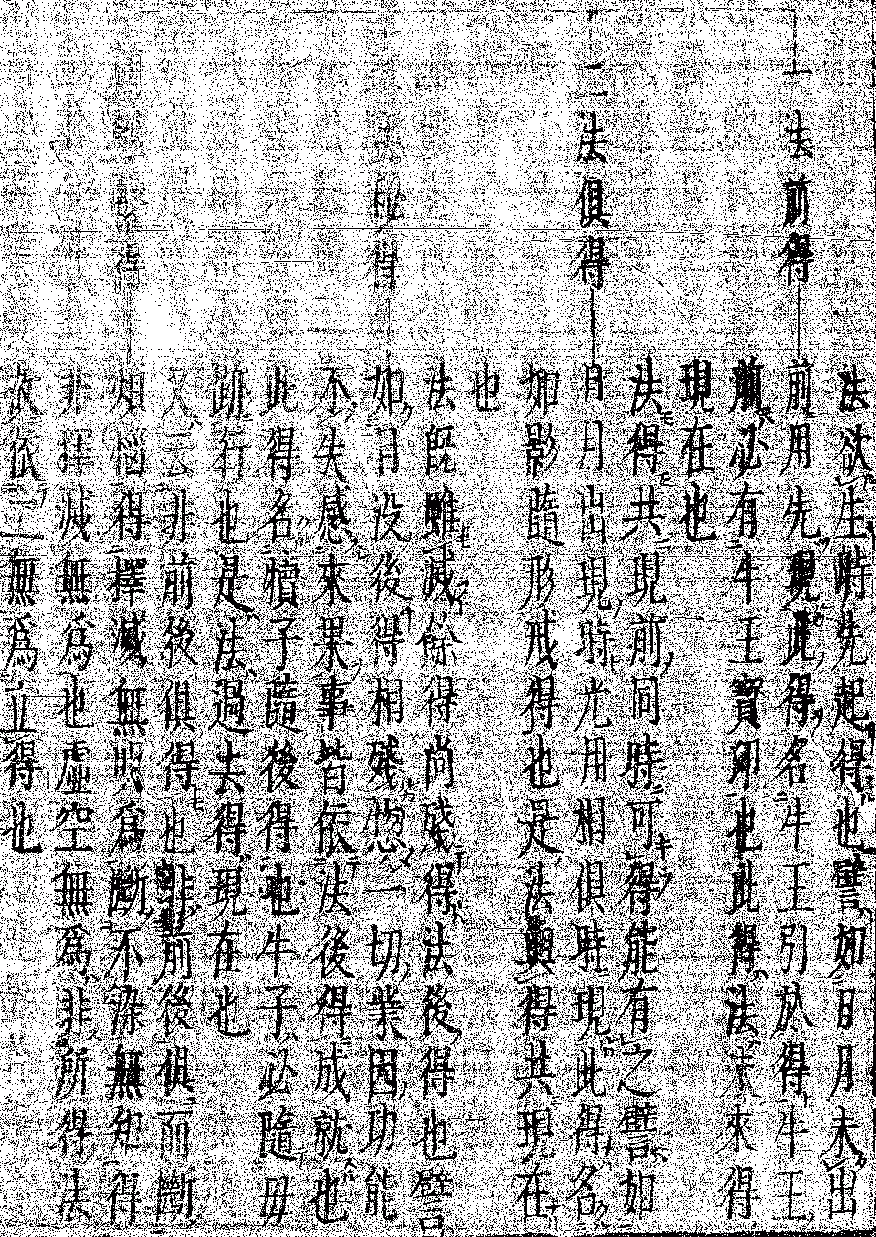 一法前得
法欲生時先起得也譬如日月未出
前用先現此得名牛王引於得牛王
前必有牛王寶卵也此得法未來得
現在也
二法俱得
法得共現前同時可得能有之譬如
日月出現時光用相俱時現此得名
如影隨形戒得也是法與得共現在
也
法後得
法既雖滅餘得尚殘得法後得也譬
如日没後得相殘惣一切業因功能
不失感來果事皆依法後得成就也
此得名犢子隨後得也牛子必隨母
跡行也是法過去得現在也
又云非前後俱得也非前後俱前斷
煩惱得擇滅無爲斷不染無知得
非擇滅無爲也虛空無爲非所得法
故依無爲立得也